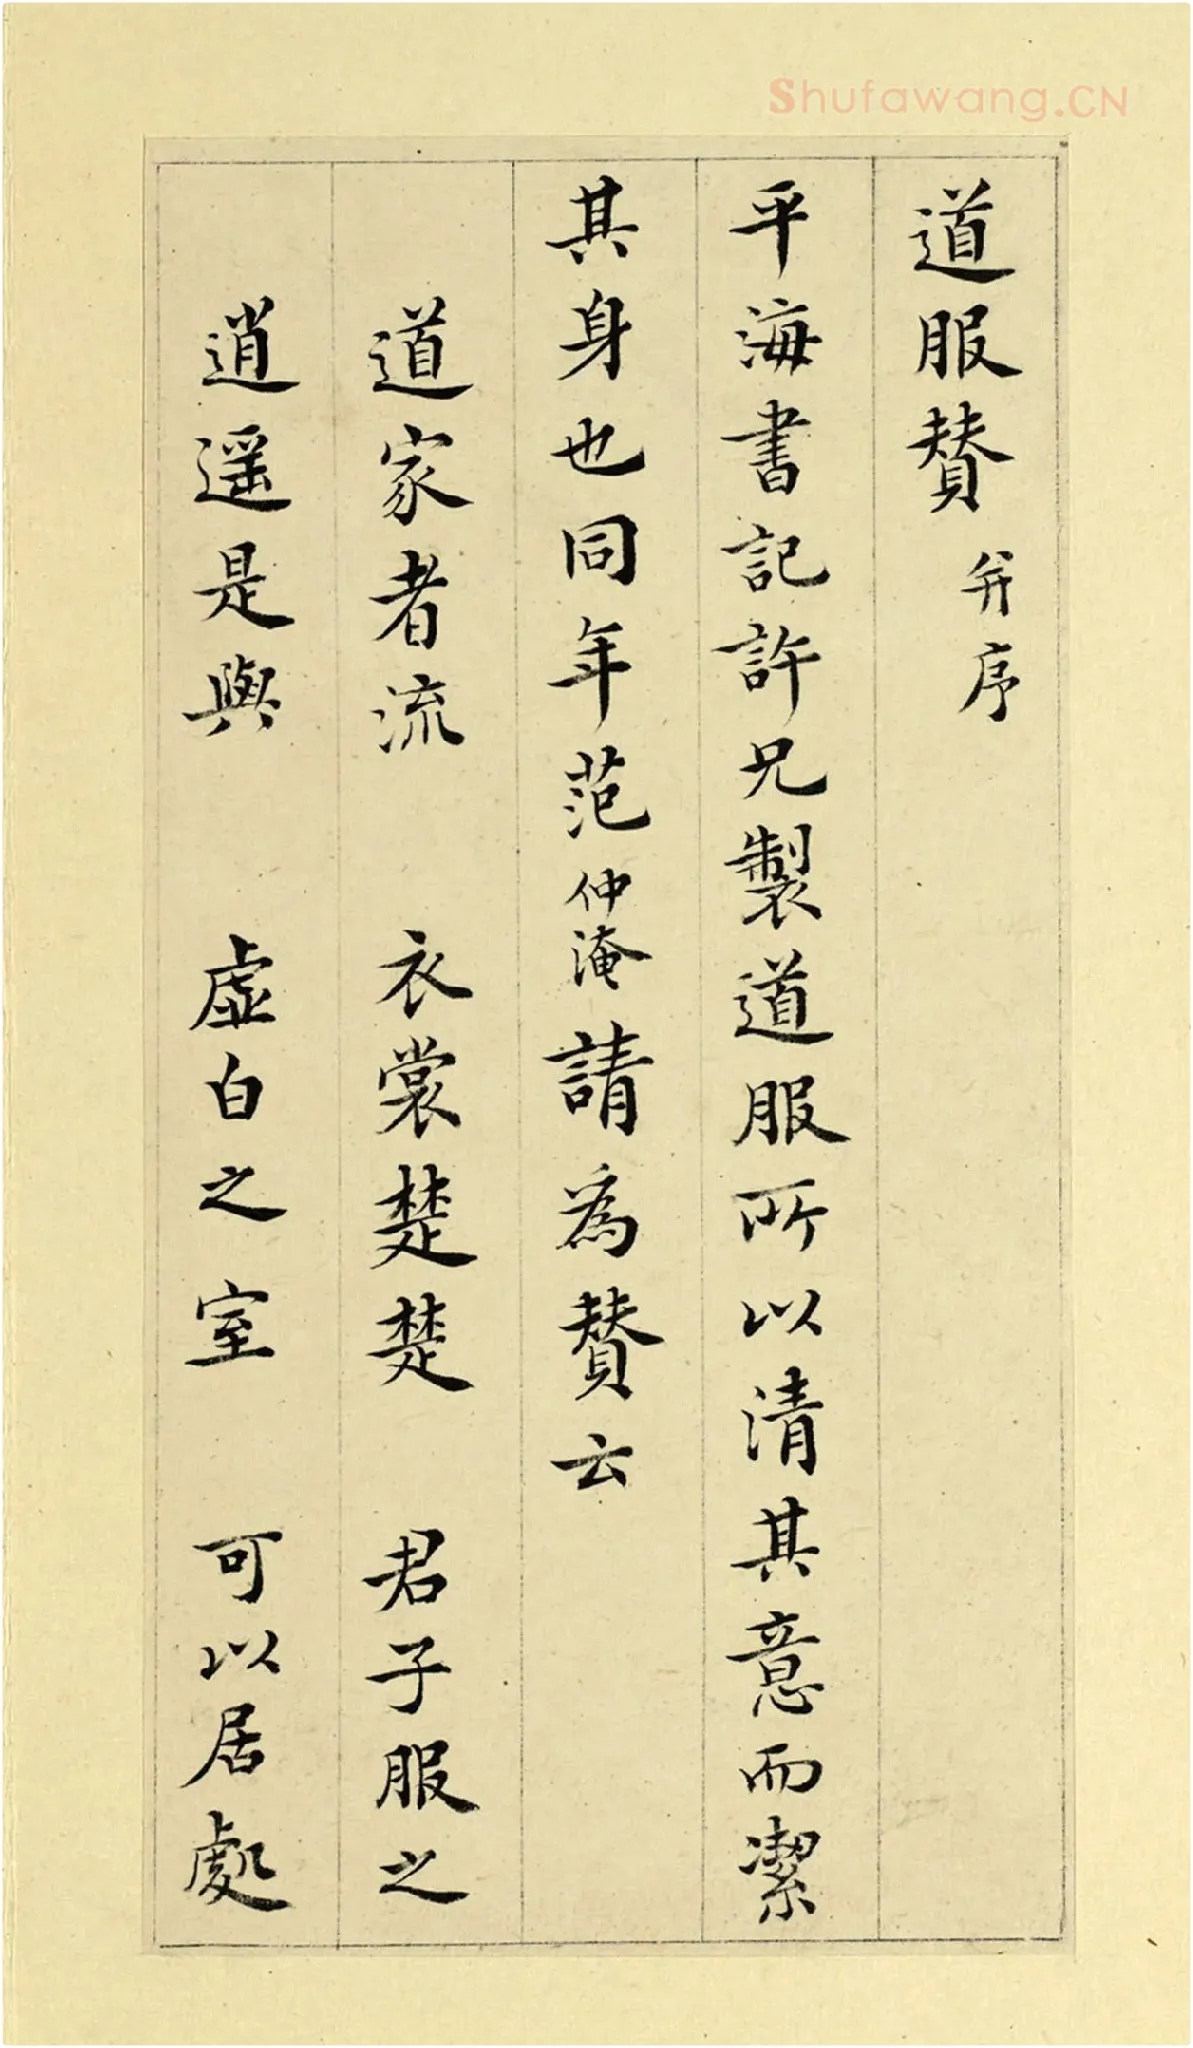 Shufawang.CN
道服贊 并序
平海書記許兄製道服所以清其意而潔
其身也同年范仲淹請為贊云
道家者流 衣裳楚楚 君子服之
逍遥是與 虛白之室 可以居處